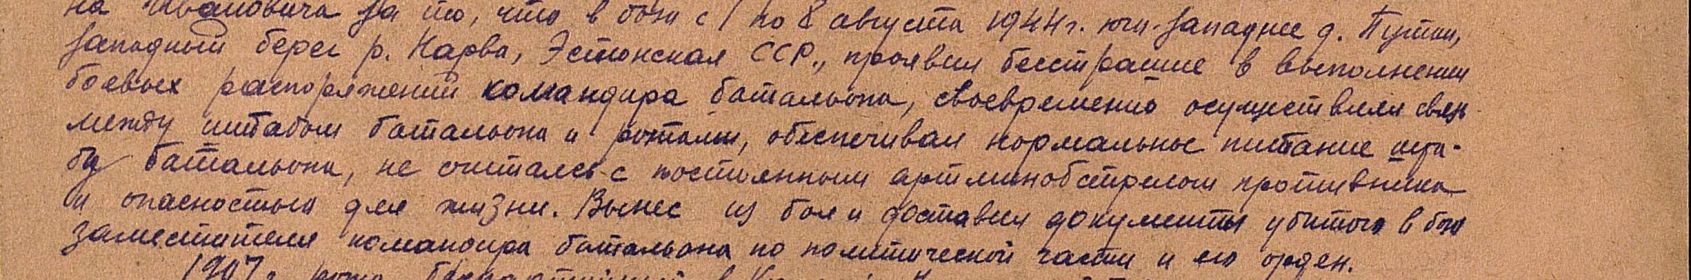 на Ивановича за то, что в бою с 1 по 8 августа 1944г. юго-западнее д.
западный берег р. Нарва, Эстонская ССР., проявил бесстрашие в выполнении
боевых распоряжений командира батальона, своевременно осуществлял связь
между штабом батальона и ротами, обеспечивал нормальное питание шта-
бу батальона, не считаясь с постоянным артминобстрелом противника
и опасностью для жизни. Вынес из боя и доставил документы убитого в бою
заместителя командира батальона по политической части и его орден.
1907г. рожд. беспартийный в